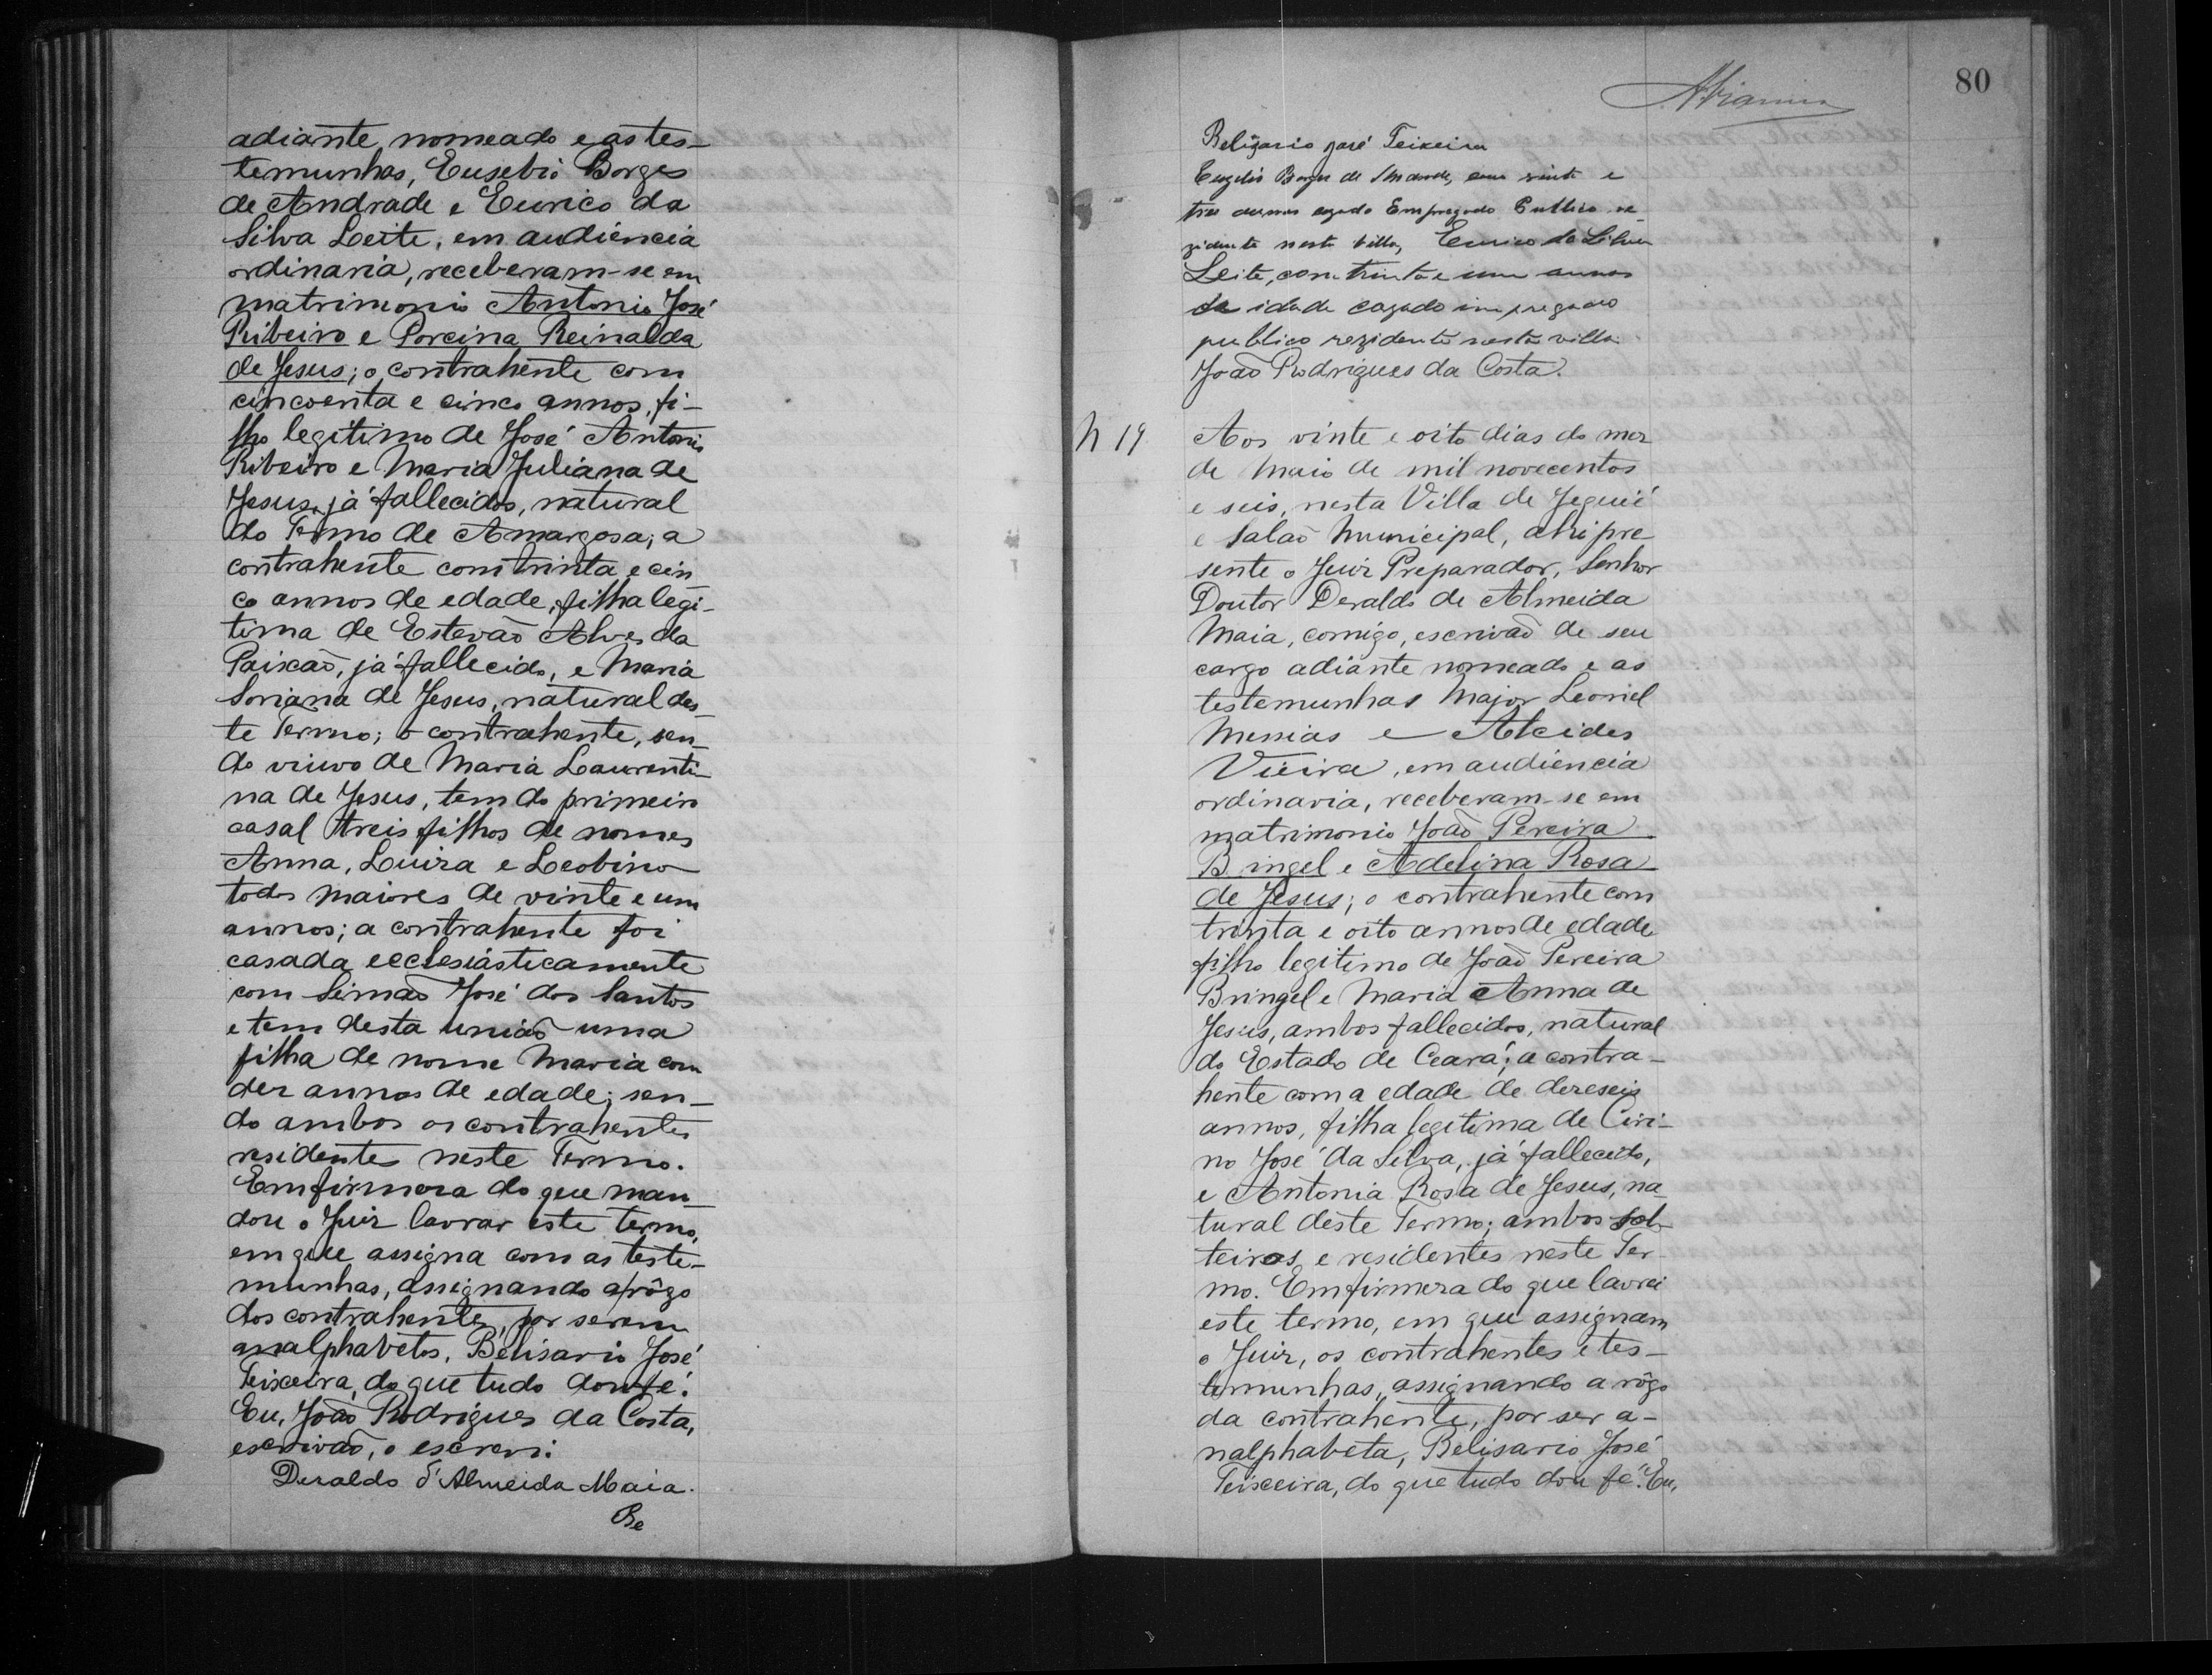 adiante nomeado e as tes-
temunhas, Eusebio Borges
de Andrade e Eurico da
Silva Leite, em audiencia
ordinaria, receberam-se em
matrimonio Antonio José
Ribeiro e Porcina Reinalda
de Jesus; o contrahente com
cincoenta e cinco annos, fi-
lho legitimo de José Antonio
Ribeiro e Maria Juliana de
Jesus, já fallecidos, natural
do Termo de Amargosa; a
contrahente com trinta e cin
co annos de edade, filha legi-
tima de Estevão Alves da
Paixão, já fallecido, e Maria
Soriana de Jesus, natural des-
te Termo; o contrahente, sen-
do viuvo de Maria Laurenti-
na de Jesus, tem do primeiro
casal treis filhos de nomes
Anna, Luiza e Leobino
todos maiores de vinte e um
annos; a contrahente foi
casada ecclesiásticamente
com Simão José dos Santos
e tem desta união uma
filha de nome Maria com
dez annos de edade; sen-
do ambos os contrahentes
residentes neste Termo.
Em firmeza do que man-
dou o Juiz lavrar este termo,
em que assigna com as teste-
munhas, assignando a rôgo
dos contrahentes, por serem
analphabetos, Belisario José
Teixeira, do que tudo dou fé.
Eu, João Rodrigues da Costa,
escrivão, o escrevi.
Deraldo d'Almeida Maia.
Be
80
Belizario José Teixeira
Euzebio Borges de Andrade, com vinte e
tres annos cazado Empregado Publico re-
zidente nesta Villa, Eurico da Silva
Leite, com trinta e um annos
de idade cazado impregado
publico rezidente nesta villa.
João Rodrigues da Costa.
N 19
Aos vinte e oito dias do mez
de Maio de mil novecentos
e seis, nesta Villa de Jequié
e Salão Municipal, ahi pre-
sente o Juiz Preparador, Senhor
Doutor Deraldo de Almeida
Maia, comigo, escrivão de seu
cargo adiante nomeado e as
testemunhas Major Leonel
Messias e Alcides
Vieira, em audiencia
ordinaria, receberam-se em
matrimonio João Pereira
Bringel e Adelina Rosa
de Jesus; o contrahente com
trinta e oito annos de edade
filho legitimo de João Pereira
Bringel e Maria Anna de
Jesus, ambos fallecidos, natural
do Estado de Ceará; a contra-
hente com a edade de dezeseis
annos, filha legitima de Ciri-
no José da Silva, já fallecido,
e Antonia Rosa de Jesus, na-
tural deste Termo; ambos sol-
teiros e residentes neste Ter-
mo. Em firmeza do que lavrei
este termo, em que assignam
o Juiz, os contrahentes e tes-
temunhas, assignando a rôgo
da contrahente, por ser a-
nalphabeta, Belisario José
Teixeira, do que tudo dou fé. Eu,